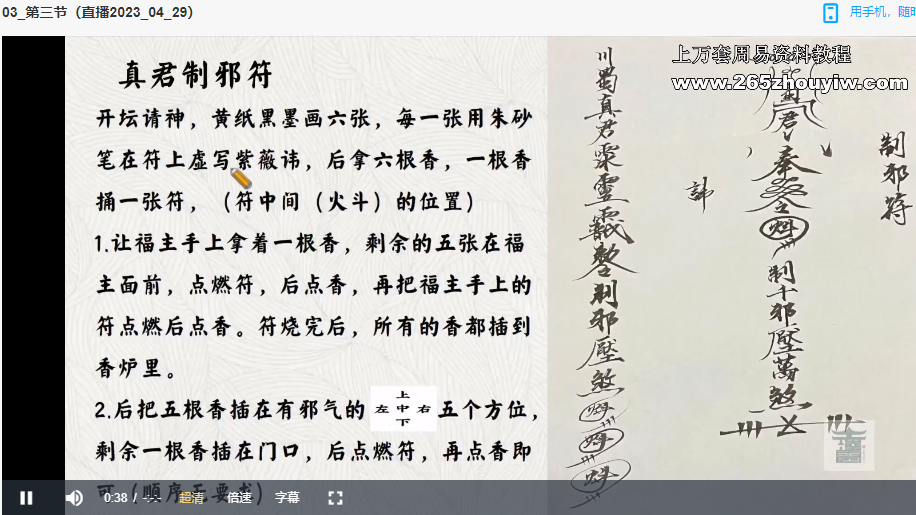 03_第三节（直播2023_04_29）
用手机，随时
上万套周易资料教程
www.265zhouyiw.com
真君制邪符
开坛请神，黄纸黑墨画六张，每一张用朱砂
笔在符上虚写紫薇讳，后拿六根香，一根香
捅一张符，（符中间（火斗）的位置）
1.让福主手上拿着一根香，剩余的五张在福
主面前，点燃符，后点香，再把福主手上的
符点燃后点香。符烧完后，所有的香都插到
香炉里。
2.后把五根香插在有邪气的
上
左 中 右
下
五个方位，
剩余一根香插在门口，后点燃符，再点香即
可（顺序无要求）
制邪符
君
奉
制千邪壓萬煞
諱
川蜀真君
靈
制邪壓煞
0:38 / -:--
超清
倍速
字幕